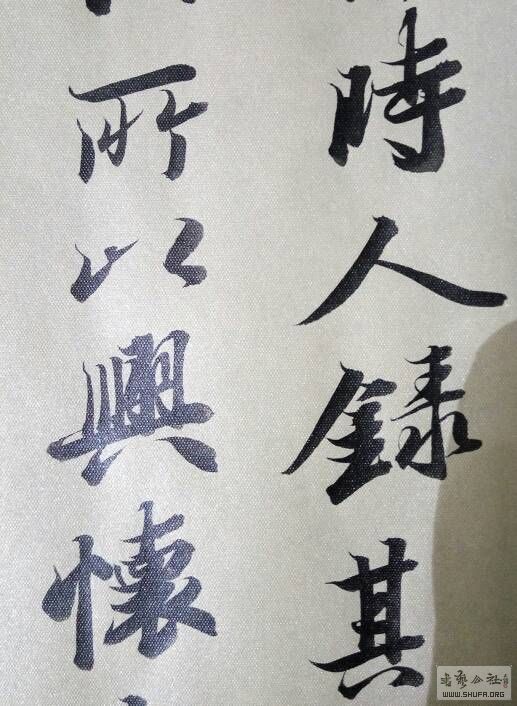 時人錄其
所以興懷
WWW.SHUFA.ORG